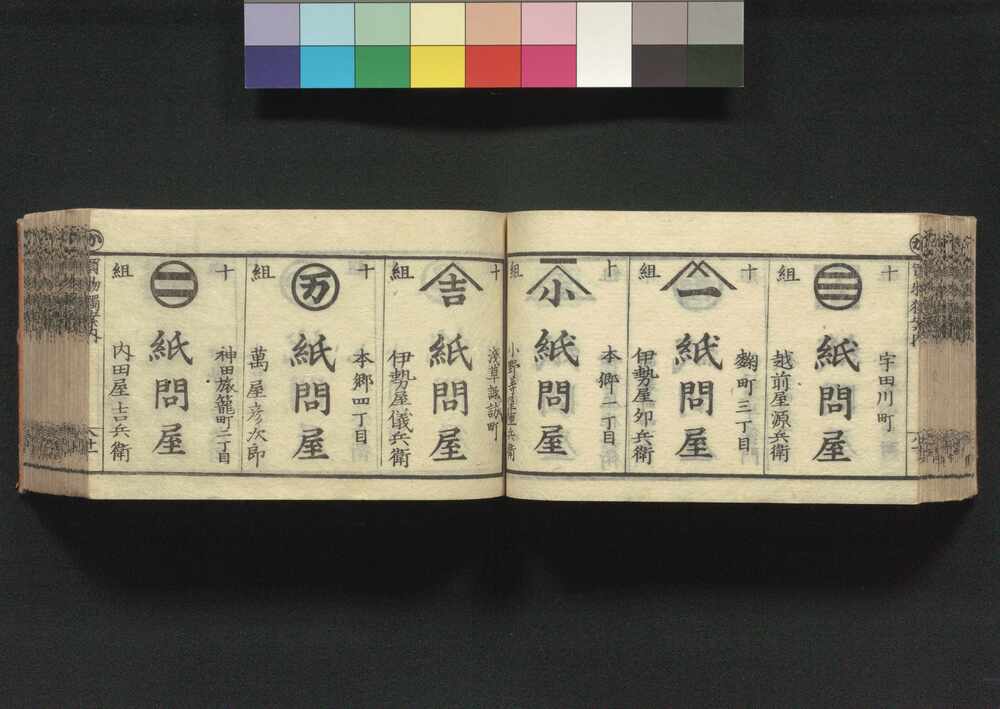 十
組
三
紙問屋
宇田川町
越前屋源兵衛
十
組
一
紙問屋
麹町三丁目
伊勢屋卯兵衛
十
組
小
紙問屋
本郷一丁目
十
組
吉
紙問屋
淺草諏訪町
伊勢屋儀兵衛
十
組
万
紙問屋
本郷四丁目
萬屋彦次郎
十
組
二
紙問屋
神田旅籠町二丁目
内田屋吉兵衛